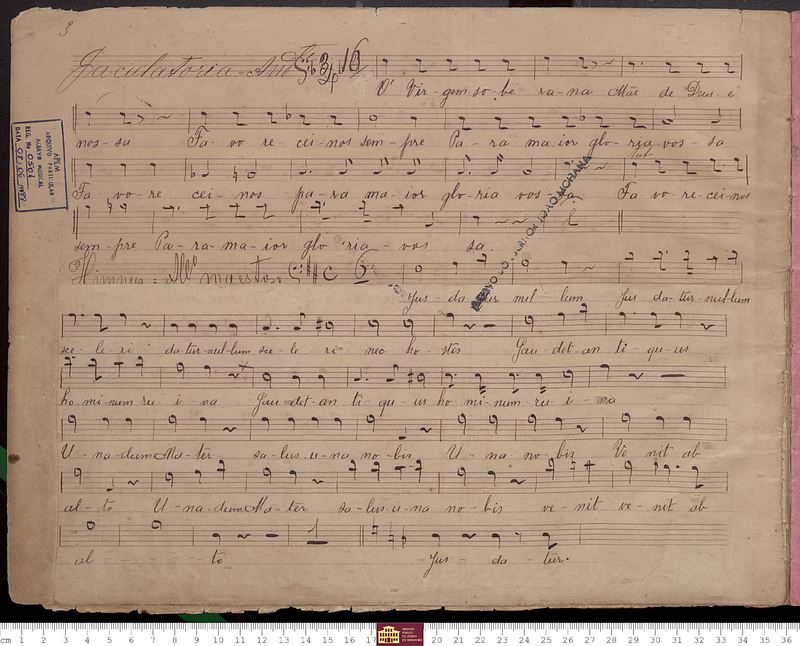 3
Jaculatoria - And.te 3/4 16
O' Vir-gem so be ra-na Mãe de Deus e
nos-sa Fa-vo re-cei-nos sem-pre Pa-ra ma-ior glo-ria vos-sa
Fa vo-re cei-nos pa-ra ma-ior glo-ria vos-sa Fa vo re-cei nos
sem-pre Pa-ra-ma-ior glo-ria-vos sa.
Himnus = All.o maestoso C 6
Jus-da-tur nul lum Jus da-tur-nul-lum
sce-le-ri da-tur-nul-lum sce-le-ri nec ho-stes Gau-det-an ti-qu-us
ho mi-num ru-i-na Gau-det-an ti-qu-us ho mi-num ru-i-na
U-na-dum Ma-ter sa-lus-u-na no-bis U-na-no-bis Ve nit ab
al-to U-na-dum Ma-ter sa-lus-u-na no-bis ve-nit ve-nit ab
al to Jus-da-tur.
APEM
ARQUIVO PARTICULAR
ACERVO MUSICAL
REG. No 0501
DATA
ACERVO DO SENHOR JOÃO MOHANA
cm 1 2 3 4 5 6 7 8 9 10 11 12 13 14 15 16 17 20 21 22 23 24 25 26 27 28 29 30 31 32 33 34 35 36
ARQUIVO PÚBLICO DO ESTADO DO MARANHÃO